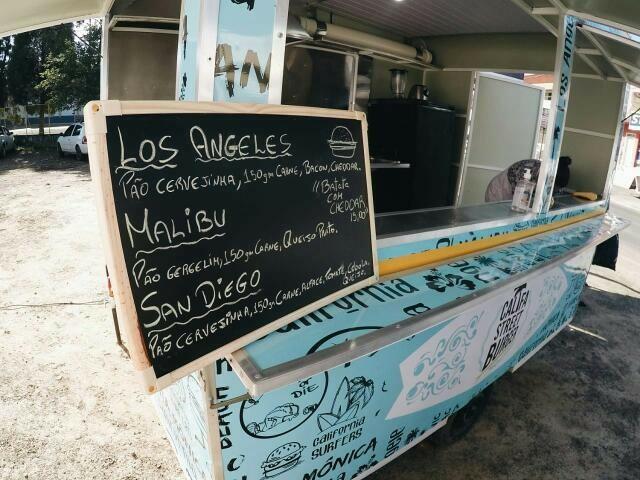 LOS ANGELES
PÃO CERVEJINHA, 150gm CARNE, BACON, CHEDDAR.
"BATATA
COM
CHEDDAR
15,00"
MALIBU
PÃO GERGELIM, 150gm CARNE, QUEIJO PRATO.
SAN DIEGO
PÃO CERVEJINHA, 150gm CARNE, ALFACE, TOMATE, CEBOLA,
QUEIJO.
AN
LOS AN
California
CALIFA
STREET
BURGER
OR
DIE
California
SURFERS
MÔNICA